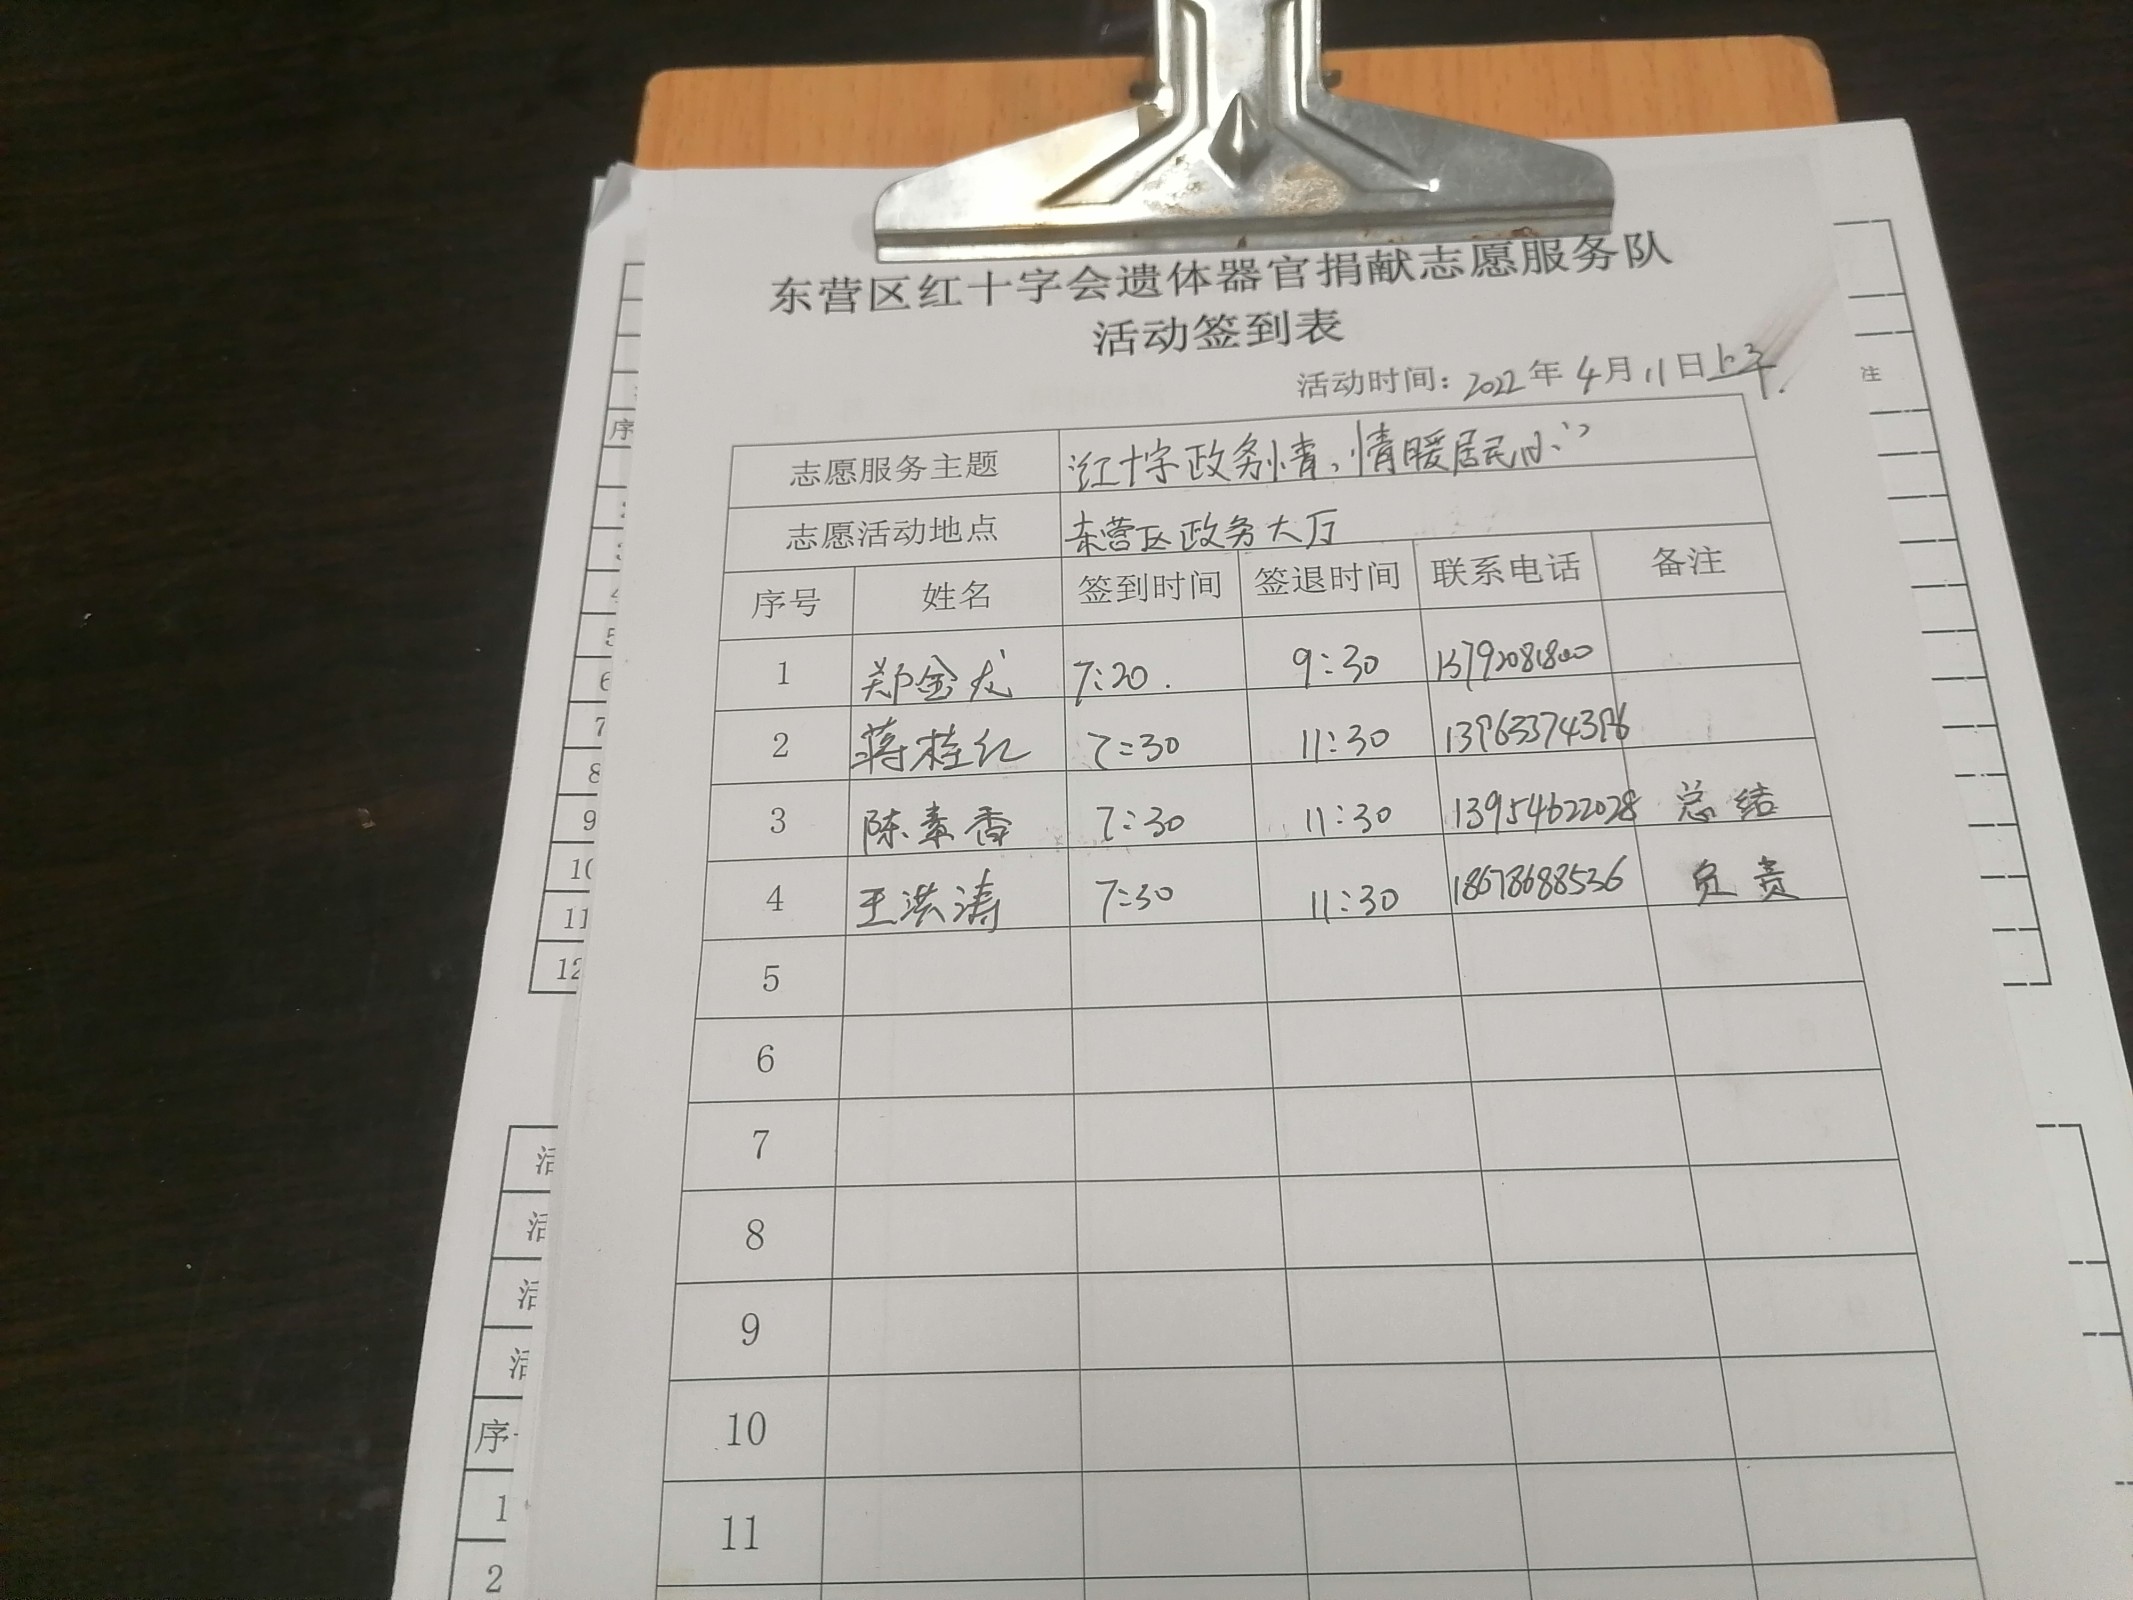 东营区红十字会遗体器官捐献志愿服务队
活动签到表
活动时间：2022年4月11日上午.
志愿服务主题 红十字政务情，情暖居民心
志愿活动地点 东营区政务大厅
序号 姓名 签到时间 签退时间 联系电话 备注
1 郑金龙 7:20. 9:30
2 蒋桂红 7:30 11:30 13963374396
3 陈素香 7:30 11:30 13954622028 总结
4 王洪涛 7:30 11:30 18678688536 负责
5
6
7
8
9
10
11
注
序
5
6
7
8
9
10
11
12
活
活
活
活
序
1
2